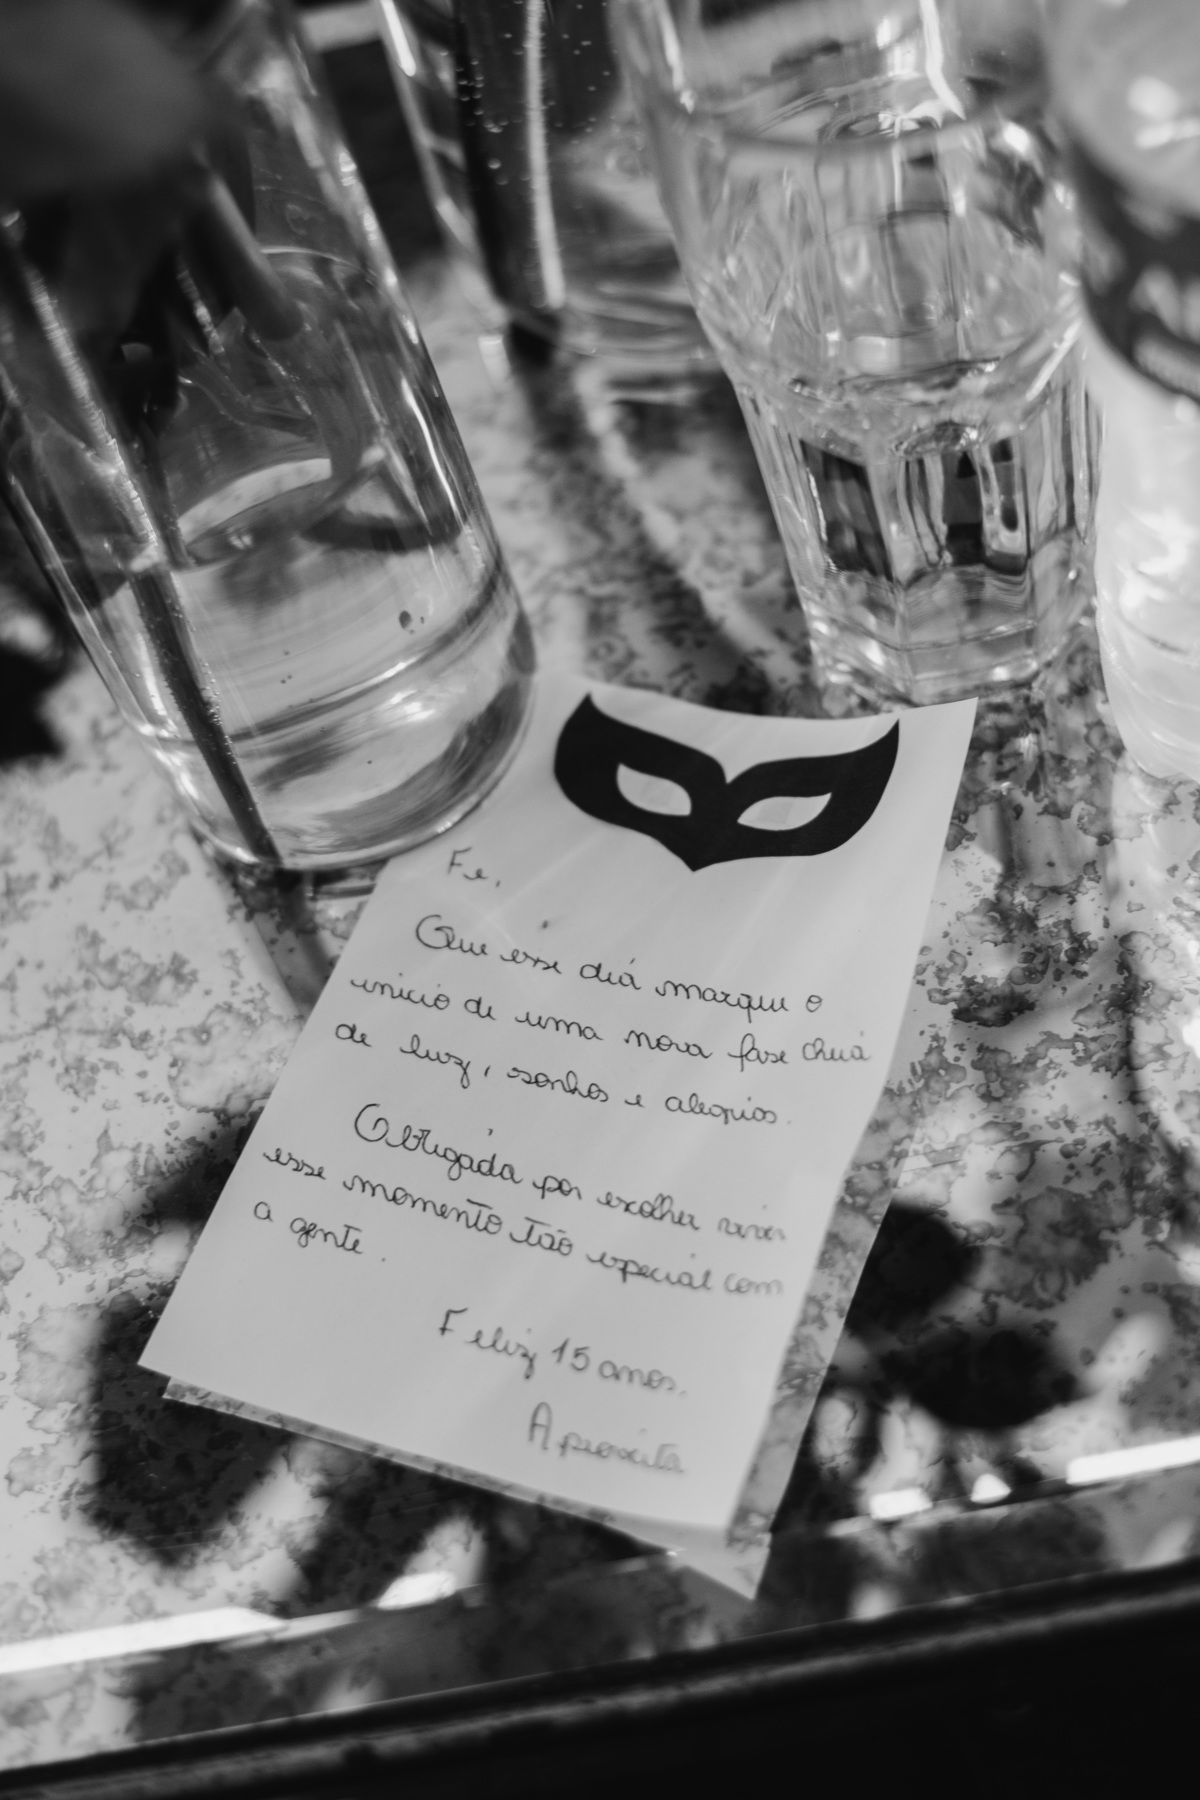 Fe,
Que esse dia marque o
inicio de uma nova fase cheia
de luz, sonhos e alegrias.
Obrigada por escolher viver
esse momento tão especial com
a gente.
Feliz 15 anos.
Aproveita